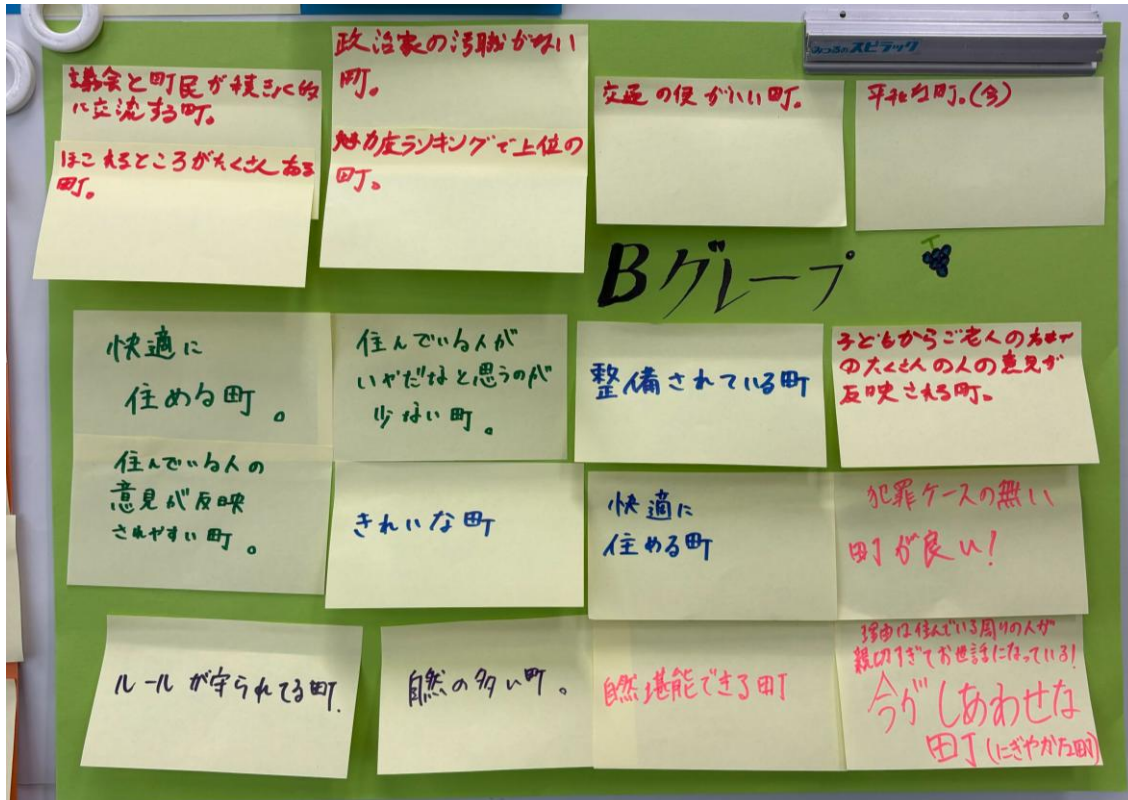 議会と町民が積きょく的
に交流する町。
ほこれるところがたくさんある
町。
政治家の汚職がない
町。
魅力度ランキングで上位の
町。
交通の便がいい町。
平和な町。(今)
みつるのスピラック
Bグループ
快適に
住める町。
住んでいる人が
いやだなと思うのが
少ない町。
整備されている町
子どもからご老人の
のたくさんの人の意見が
反映される町。
住んでいる人の
意見が反映
されやすい町。
きれいな町
快適に
住める町
犯罪ケースの無い
町が良い!
ルールが守られてる町.
自然の多い町。
自然堪能できる町
理由は住んでいる周りの人が
親切すぎてお世話になっている!
今がしあわせな
町(にぎやかな町)